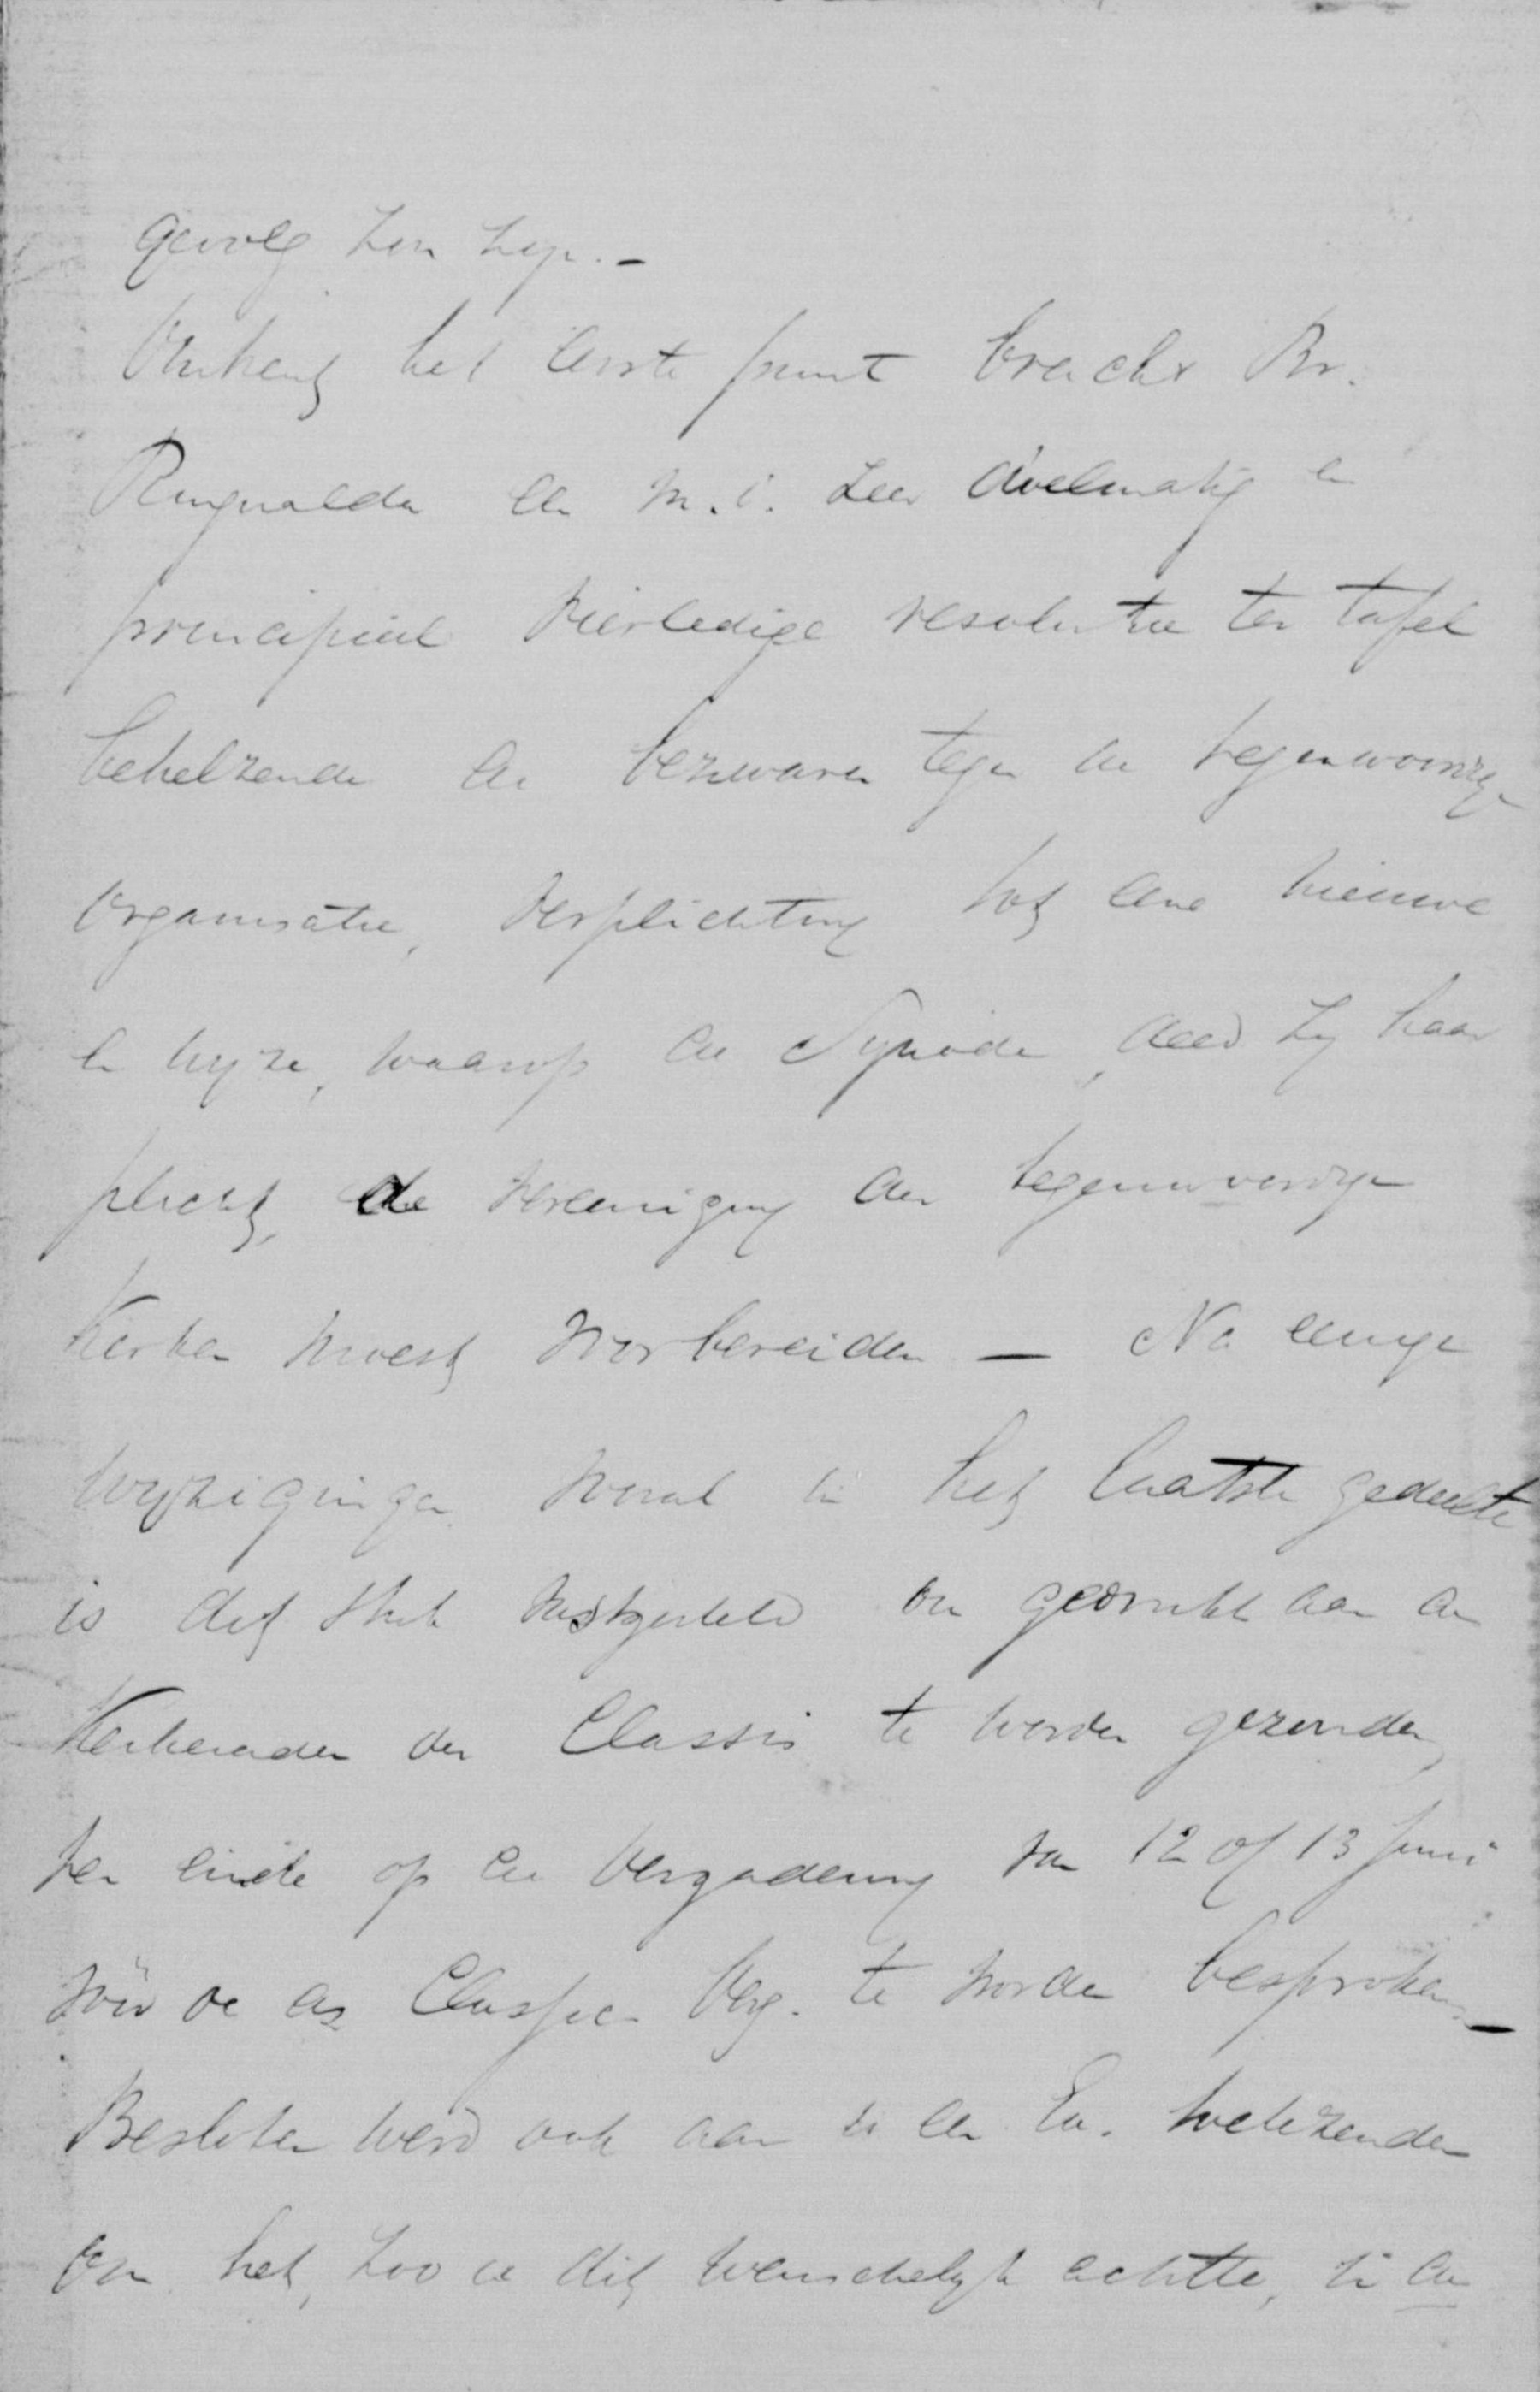 gevolg zou zijn. –
Omtrent het eerste punt bracht Br.
Ringnalda een m.i. zeer doelmatig en
principieel vierledige resolutie ter tafel
behelzende de bezwaren tegen de tegenwoordige
organisatie, verplichting tot eene nieuwe
en wijze, waarop de Synode, deed zij haar
plicht, de vereeniging der tegenwoordige
Kerken moest voorbereiden – Na eenige
wijzigingen vooral in het laatste gedeelte
is dit stuk vastgesteld om gedrukt aan de
Kerkeraden der Classis te worden gezonden,
ten einde op de Vergadering van 12 of 13 Juni
vóór de Classic. Verg. te worden besproken –
Besloten werd ook aan U een Ex. toetezenden
om het, zoo U dit wenschelijk achtte, in de